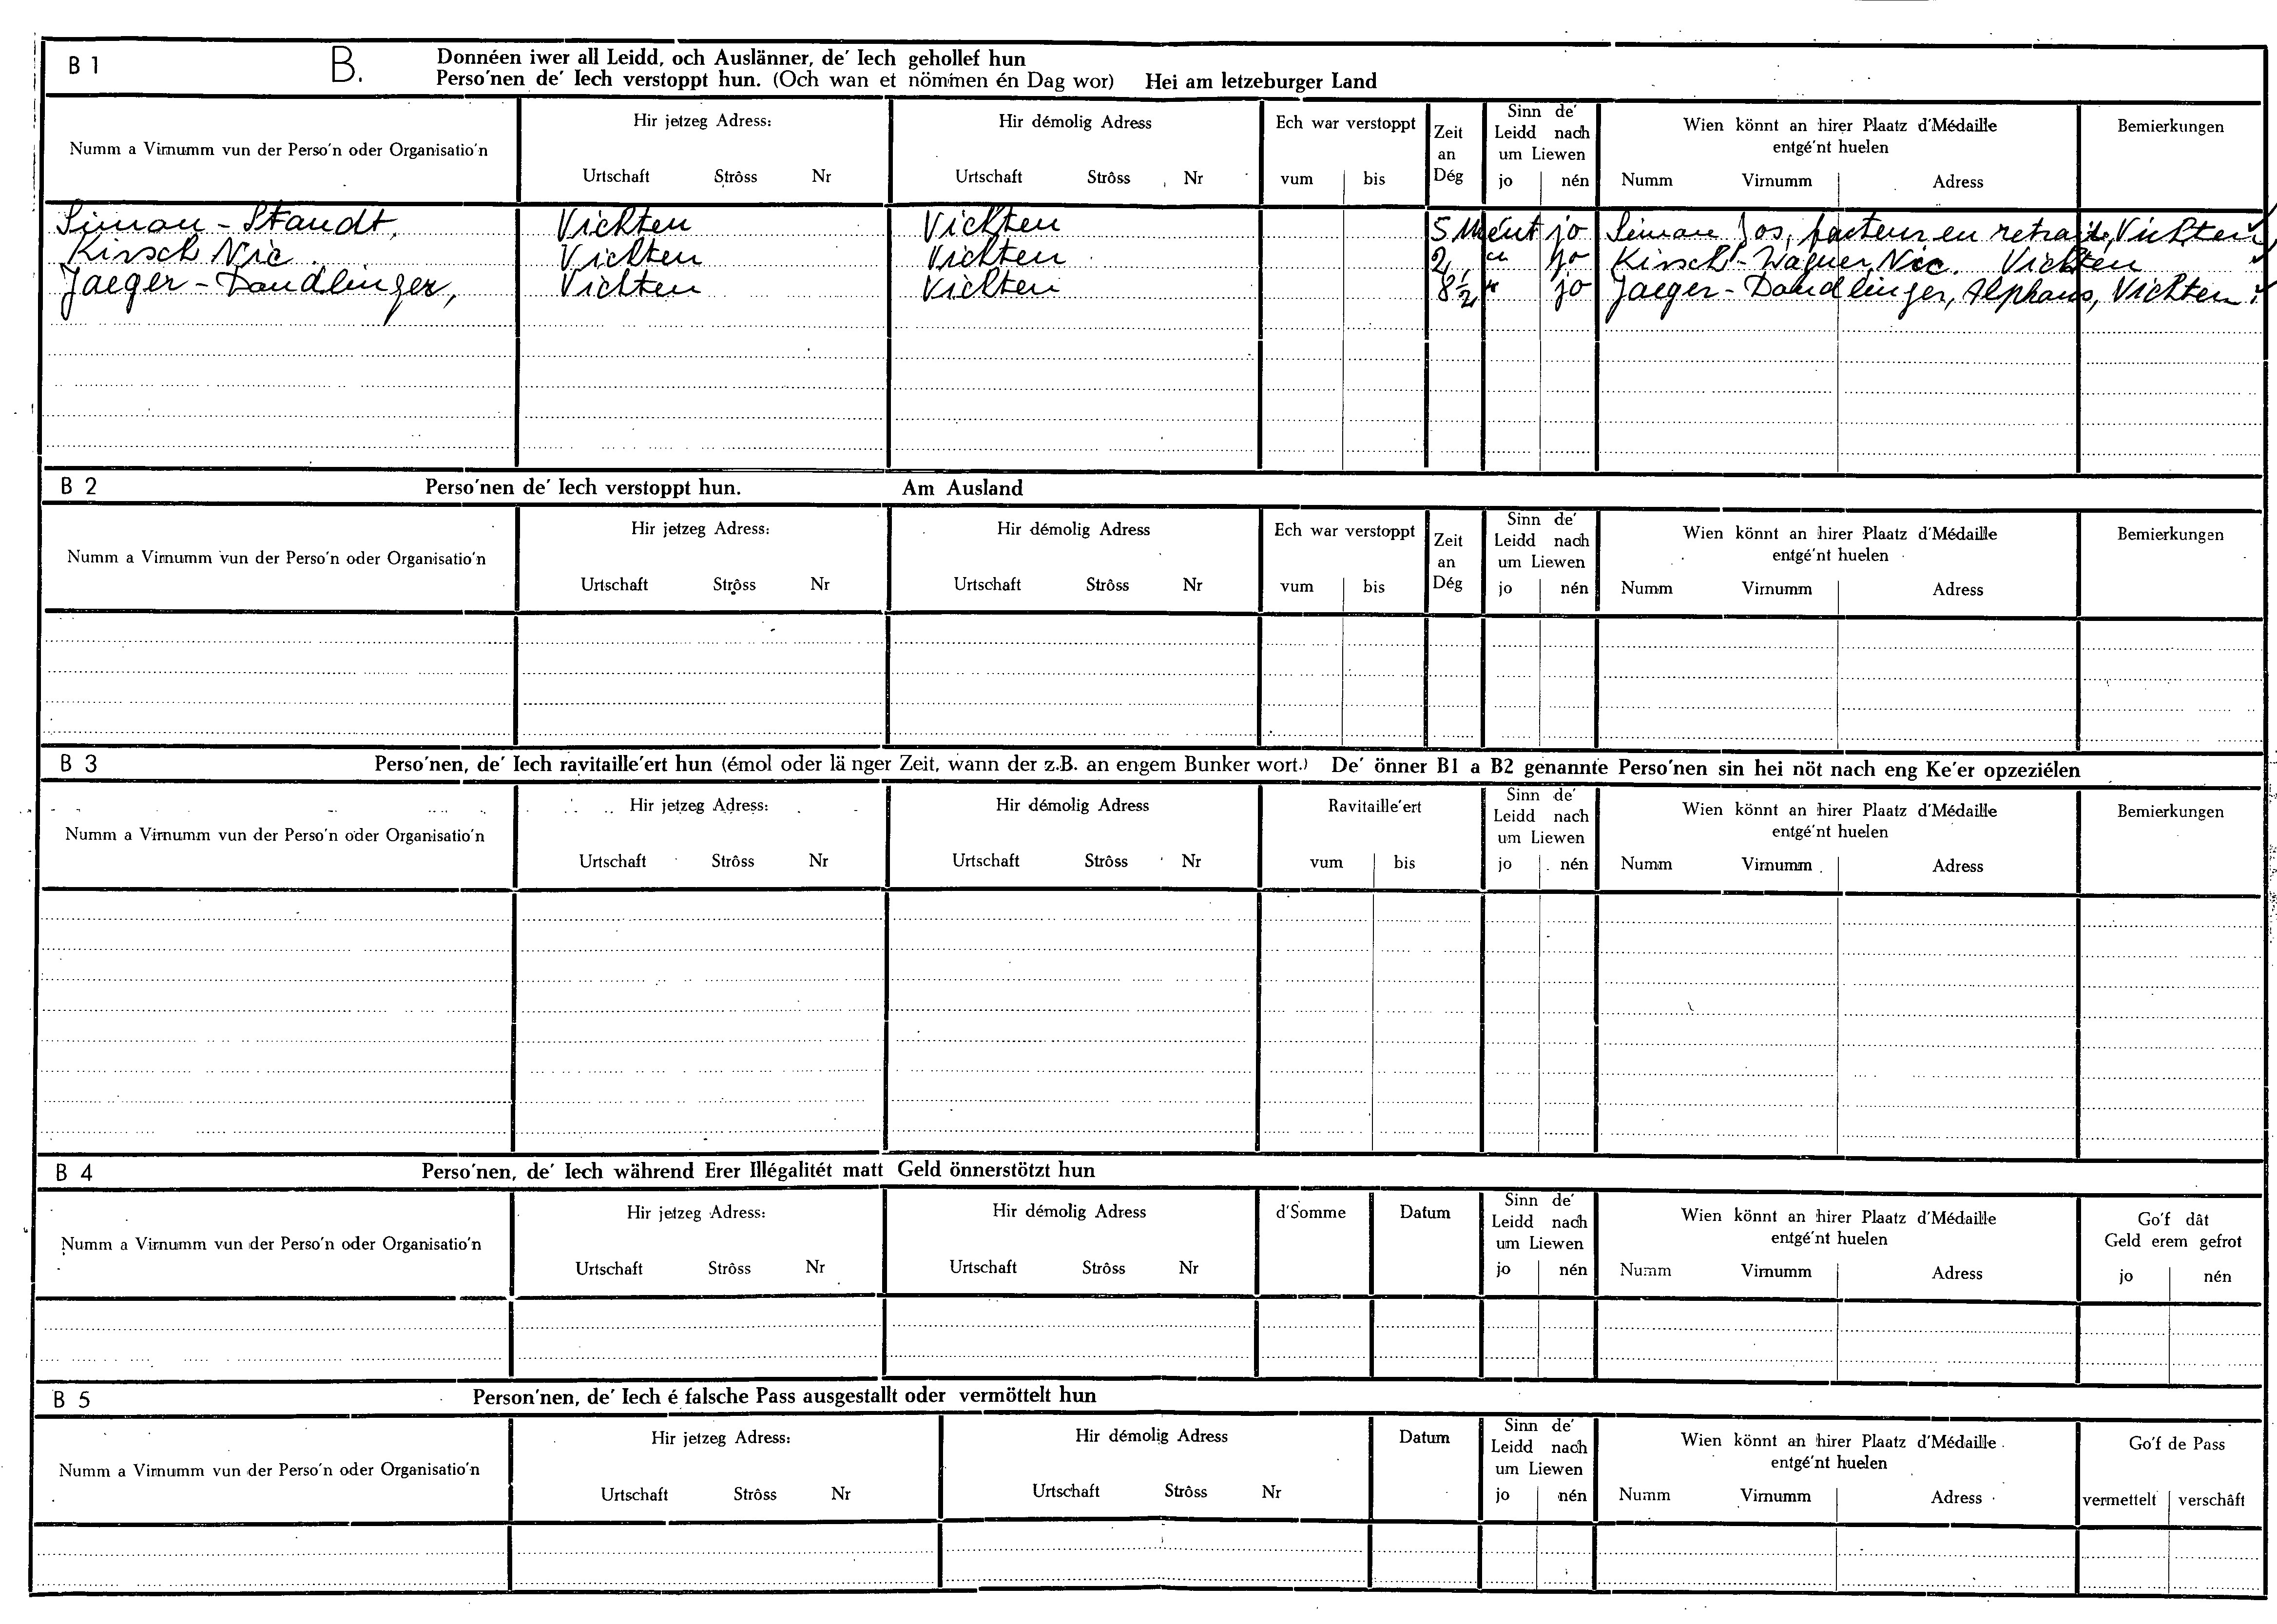 B 1 B. Donnéen iwer all Leidd, och Auslänner, de' Iech gehollef hun
Perso'nen de' Iech verstoppt hun. (Och wan et nömmen én Dag wor) Hei am letzeburger Land
Numm a Virnumm vun der Perso'n oder Organisatio'n
Hir jetzeg Adress:
Urtschaft Strôss Nr
Hir démolig Adress
Urtschaft Strôss Nr
Ech war verstoppt
vum bis
Zeit
an
Dég
Sinn de'
Leidd nach
um Liewen
jo nén
Wien könnt an hirer Plaatz d'Médaille
entgé'nt huelen
Numm Virnumm Adress
Bemierkungen
Simon - Staudt, Vichten Vichten 5 Ment jo Simon Jos, facteur en retraite, Vichten
Kirsch Nic. Vichten Vichten 2 " jo Kirsch - Wagner Nic. Vichten
Jaeger - Dondlinger, Vichten Vichten 8 1/2 " jo Jaeger - Dondlinger, Alphons, Vichten
B 2 Perso'nen de' Iech verstoppt hun. Am Ausland
Numm a Virnumm vun der Perso'n oder Organisatio'n
Hir jetzeg Adress:
Urtschaft Strôss Nr
Hir démolig Adress
Urtschaft Strôss Nr
Ech war verstoppt
vum bis
Zeit
an
Dég
Sinn de'
Leidd nach
um Liewen
jo nén
Wien könnt an hirer Plaatz d'Médaille
entgé'nt huelen
Numm Virnumm Adress
Bemierkungen
B 3 Perso'nen, de' Iech ravitaille'ert hun (émol oder länger Zeit, wann der z.B. an engem Bunker wort.) De' önner B1 a B2 genannte Perso'nen sin hei nöt nach eng Ke'er opzeziélen
Numm a Virnumm vun der Perso'n oder Organisatio'n
Hir jetzeg Adress:
Urtschaft Strôss Nr
Hir démolig Adress
Urtschaft Strôss Nr
Ravitaille'ert
vum bis
Sinn de'
Leidd nach
um Liewen
jo nén
Wien könnt an hirer Plaatz d'Médaille
entgé'nt huelen
Numm Virnumm Adress
Bemierkungen
B 4 Perso'nen, de' Iech während Erer Illégalitét matt Geld önnerstötzt hun
Numm a Virnumm vun der Perso'n oder Organisatio'n
Hir jetzeg Adress:
Urtschaft Strôss Nr
Hir démolig Adress
Urtschaft Strôss Nr
d'Somme
Datum
Sinn de'
Leidd nach
um Liewen
jo nén
Wien könnt an hirer Plaatz d'Médaille
entgé'nt huelen
Numm Virnumm Adress
Go'f dât
Geld erem gefrot
jo nén
B 5 Person'nen, de' Iech é falsche Pass ausgestallt oder vermöttelt hun
Numm a Virnumm vun der Perso'n oder Organisatio'n
Hir jetzeg Adress:
Urtschaft Strôss Nr
Hir démolig Adress
Urtschaft Strôss Nr
Datum
Sinn de'
Leidd nach
um Liewen
jo nén
Wien könnt an hirer Plaatz d'Médaille
entgé'nt huelen
Numm Virnumm Adress
Go'f de Pass
vermettelt verschâft